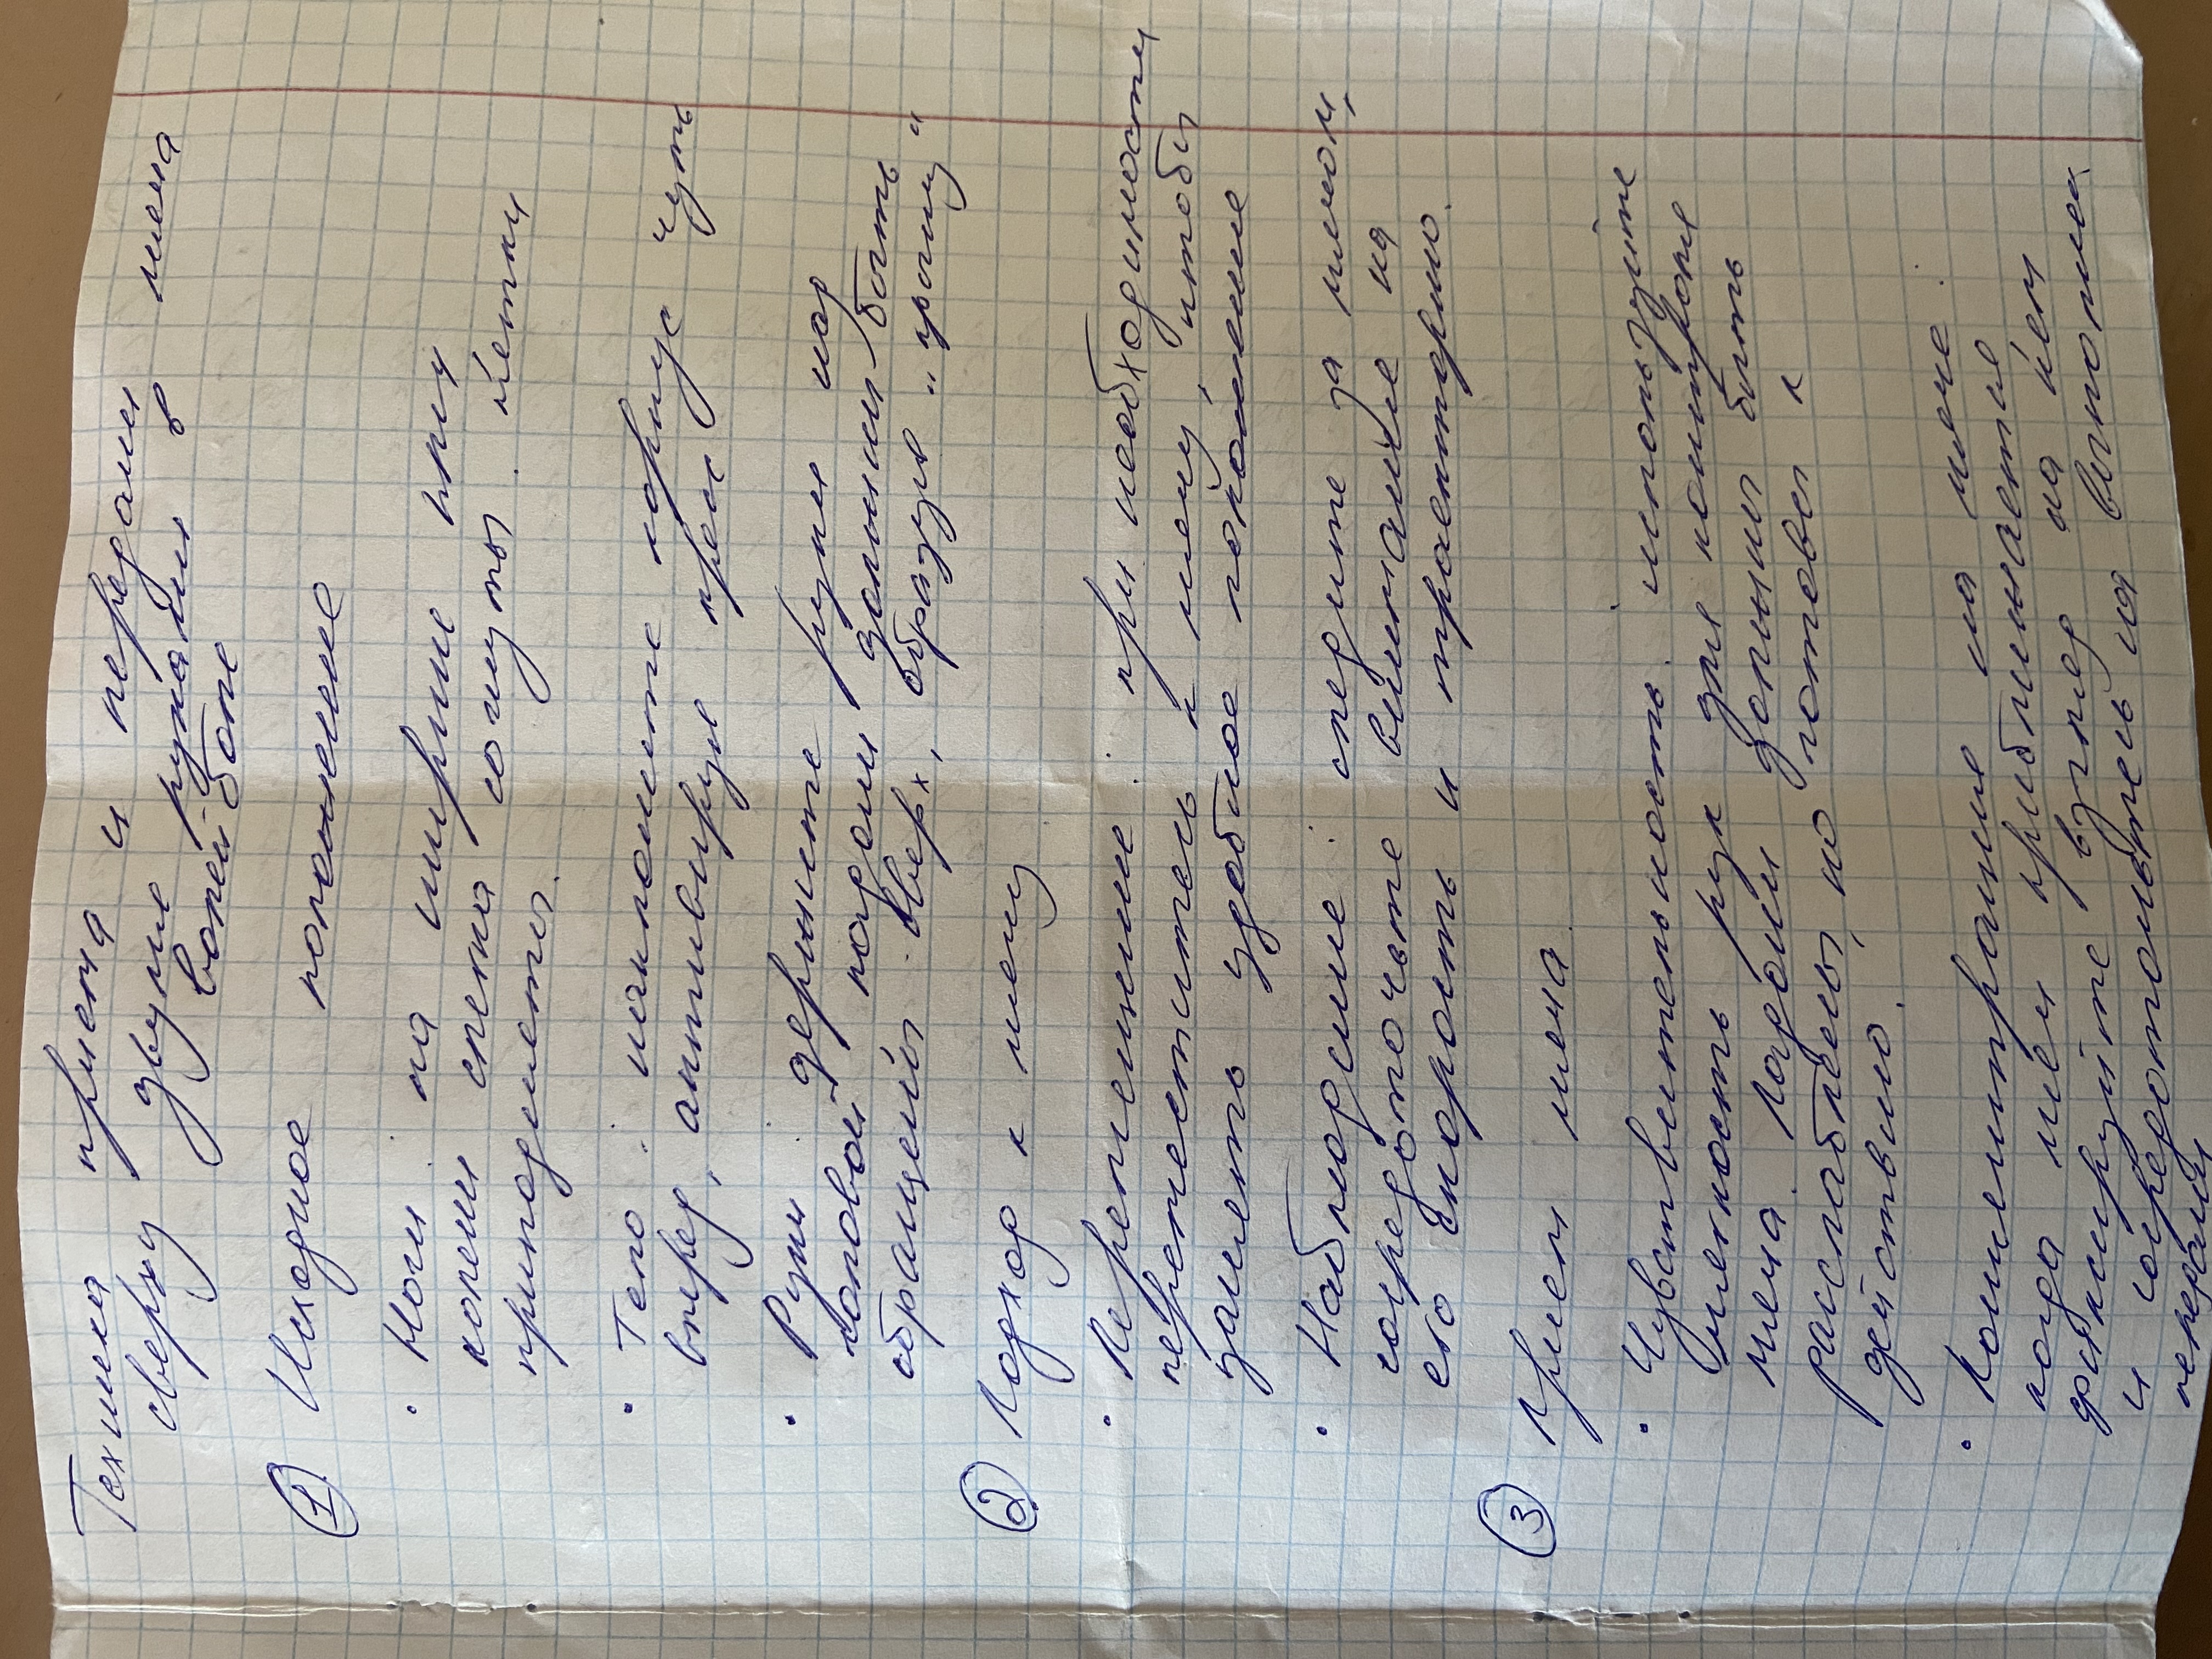 Техника приема и передачи мяча
сверху двумя руками в
волейболе
1 Исходное положение
• Ноги: на ширине плеч
колени слегка согнуты. пятки
приподняты.
• Тело: наклоните корпус чуть
вперед, активируя пресс
• Руки: держите руки над
головой ладони должны быть
обращены вверх, образуя "крышу"
2 Подход к мячу
• Перемещение: при необходимости
переместитесь к мячу, чтобы
занять удобное положение
• Наблюдение: следите за мячом,
сосредоточьте внимание на
его скорость и траекторию.
3 Прием мяча
• Чувствительность: используйте
мягкость рук для контроля
мяча. Ладони должны быть
расслаблены, но готовы к
действию.
• Концентрация на мяче:
когда мяч приближается
фиксируйте взгляд на нем
и сосредотачивайтесь на выполнен
передачи